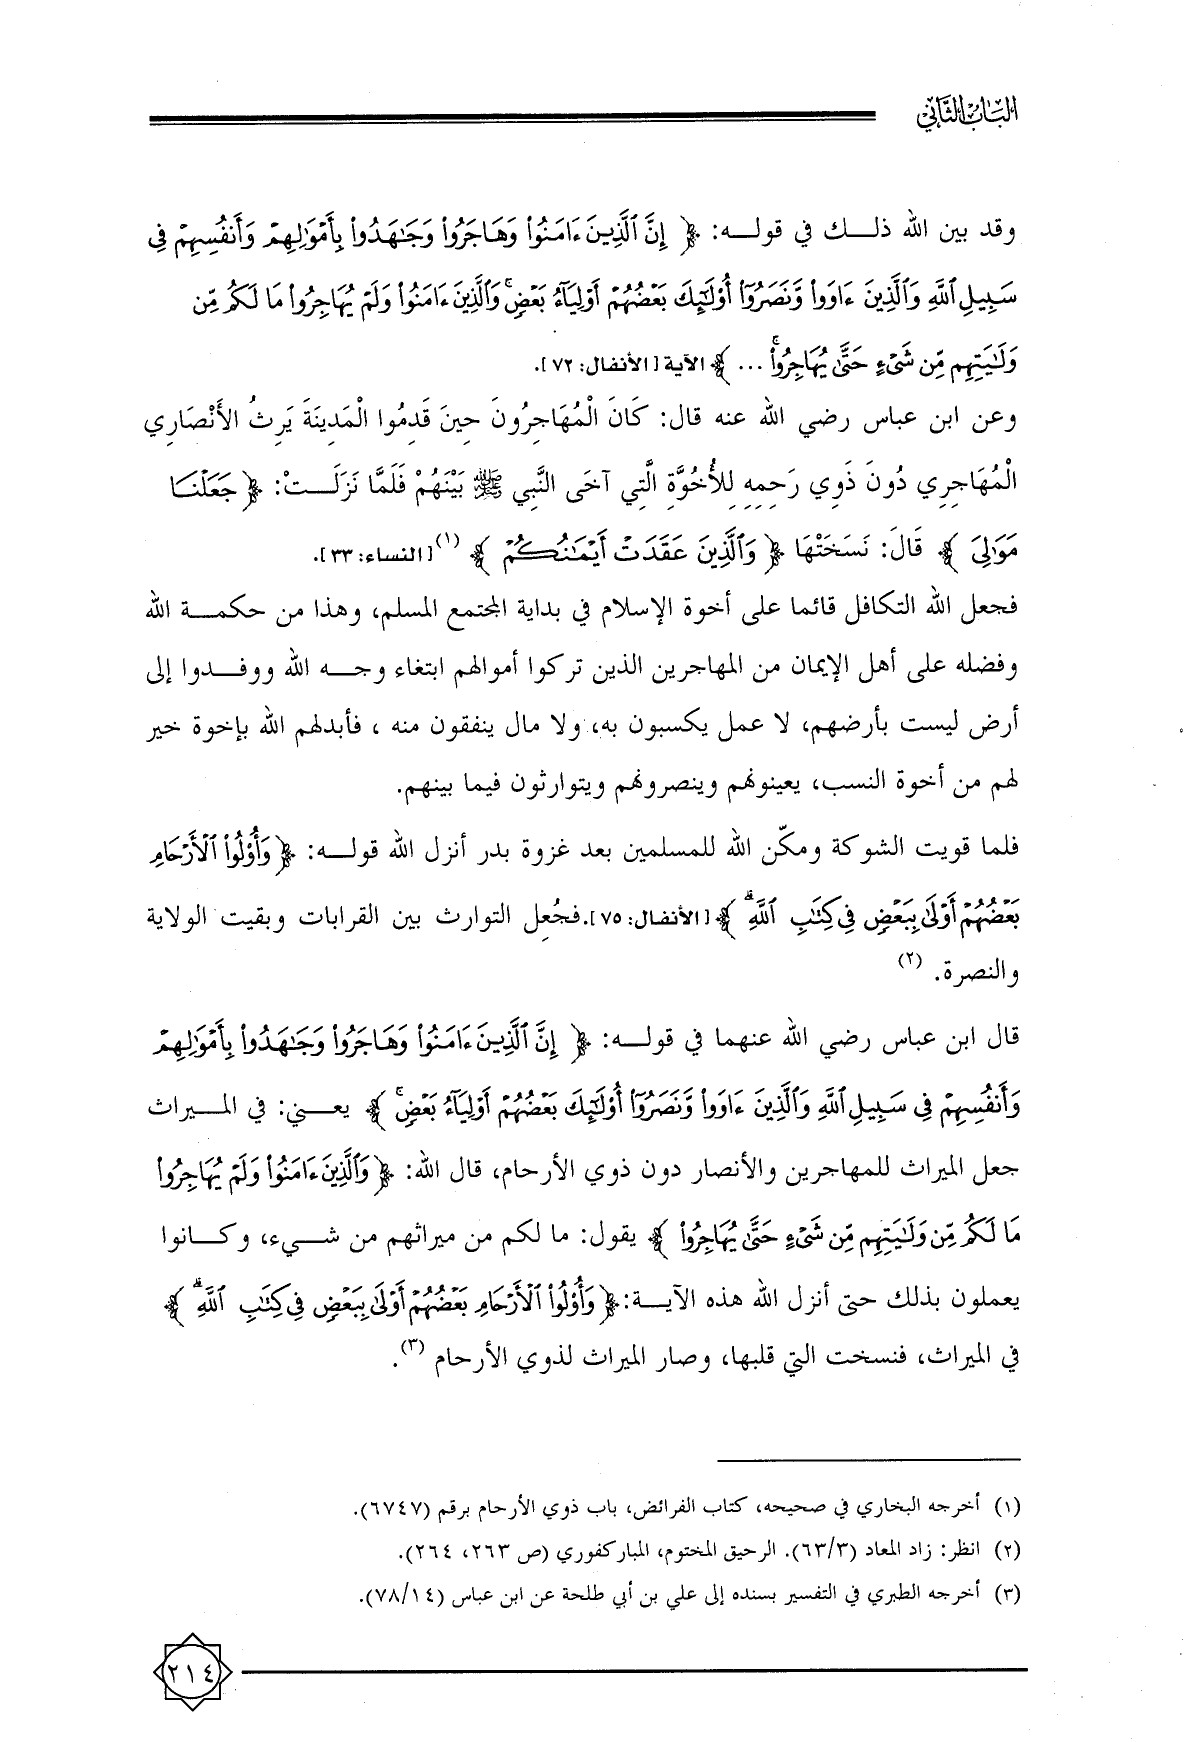 الباب الثاني
وقد بين الله ذلك في قوله: ﴿ إِنَّ ٱلَّذِينَ ءَامَنُواْ وَهَاجَرُواْ وَجَٰهَدُواْ بِأَمْوَٰلِهِمْ وَأَنفُسِهِمْ فِى
سَبِيلِ ٱللَّهِ وَٱلَّذِينَ ءَاوَواْ وَّنَصَرُوٓاْ أُوْلَٰٓئِكَ بَعْضُهُمْ أَوْلِيَآءُ بَعْضٍۚ وَٱلَّذِينَ ءَامَنُواْ وَلَمْ يُهَاجِرُواْ مَا لَكُم مِّن
وَلَٰيَتِهِم مِّن شَىْءٍ حَتَّىٰ يُهَاجِرُواْۚ ... ﴾ الآية [الأنفال: ٧٢].
وعن ابن عباس رضي الله عنه قال: كَانَ الْمُهَاجِرُونَ حِينَ قَدِمُوا الْمَدِينَةَ يَرِثُ الأَنْصَارِي
الْمُهَاجِرِي دُونَ ذَوِي رَحِمِهِ لِلأُخُوَّةِ الَّتِي آخَى النَّبِي ﷺ بَيْنَهُمْ فَلَمَّا نَزَلَتْ: ﴿ جَعَلْنَا
مَوَٰلِىَ ﴾ قَالَ: نَسَخَتْهَا ﴿ وَٱلَّذِينَ عَقَدَتْ أَيْمَٰنُكُمْ ﴾ (١) [النساء: ٣٣].
فجعل الله التكافل قائما على أخوة الإسلام في بداية المجتمع المسلم، وهذا من حكمة الله
وفضله على أهل الإيمان من المهاجرين الذين تركوا أموالهم ابتغاء وجه الله ووفدوا إلى
أرض ليست بأرضهم، لا عمل يكسبون به، ولا مال ينفقون منه ، فأبدلهم الله بإخوة خير
لهم من أخوة النسب، يعينونهم وينصرونهم ويتوارثون فيما بينهم.
فلما قويت الشوكة ومكّن الله للمسلمين بعد غزوة بدر أنزل الله قوله: ﴿ وَأُوْلُواْ ٱلْأَرْحَامِ
بَعْضُهُمْ أَوْلَىٰ بِبَعْضٍ فِى كِتَٰبِ ٱللَّهِۗ ﴾ [الأنفال: ٧٥].فجُعِل التوارث بين القرابات وبقيت الولاية
والنصرة. (٢)
قال ابن عباس رضي الله عنهما في قوله: ﴿ إِنَّ ٱلَّذِينَ ءَامَنُواْ وَهَاجَرُواْ وَجَٰهَدُواْ بِأَمْوَٰلِهِمْ
وَأَنفُسِهِمْ فِى سَبِيلِ ٱللَّهِ وَٱلَّذِينَ ءَاوَواْ وَّنَصَرُوٓاْ أُوْلَٰٓئِكَ بَعْضُهُمْ أَوْلِيَآءُ بَعْضٍۚ ﴾ يعني: في الميراث
جعل الميراث للمهاجرين والأنصار دون ذوي الأرحام، قال الله: ﴿ وَٱلَّذِينَ ءَامَنُواْ وَلَمْ يُهَاجِرُواْ
مَا لَكُم مِّن وَلَٰيَتِهِم مِّن شَىْءٍ حَتَّىٰ يُهَاجِرُواْ ﴾ يقول: ما لكم من ميراثهم من شيء، وكانوا
يعملون بذلك حتى أنزل الله هذه الآية:﴿ وَأُوْلُواْ ٱلْأَرْحَامِ بَعْضُهُمْ أَوْلَىٰ بِبَعْضٍ فِى كِتَٰبِ ٱللَّهِۗ ﴾
في الميراث، فنسخت التي قلبها، وصار الميراث لذوي الأرحام (٣).
(١) أخرجه البخاري في صحيحه، كتاب الفرائض، باب ذوي الأرحام برقم (٦٧٤٧).
(٢) انظر: زاد المعاد (٦٣/٣). الرحيق المختوم، المباركفوري (ص ٢٦٣، ٢٦٤).
(٣) أخرجه الطبري في التفسير بسنده إلى علي بن أبي طلحة عن ابن عباس (٧٨/١٤).
٢١٤